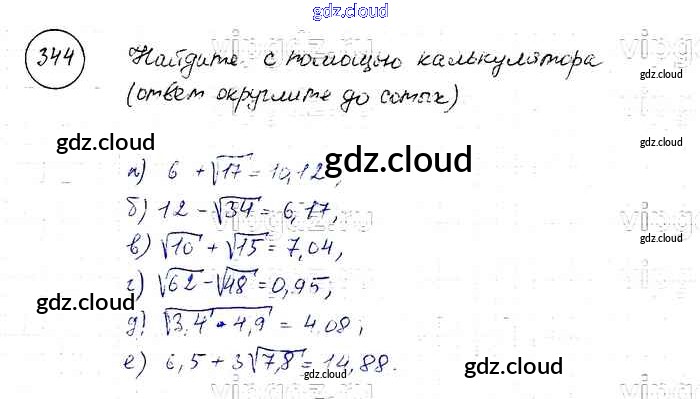 gdz.cloud
344 Найдите с помощью калькулятора
(ответ округлите до сотых)
gdz.cloud
gdz.cloud
а) 6 + √17 = 10,12,
б) 12 - √34 = 6,17,
gdz.cloud
в) √10 + √15 = 7,04,
г) √62 - √48 = 0,95;
gdz.cloud
gdz.cloud
д) √3,4 · 4,9 = 4.08;
е) 6,5 + 3√7,8 = 14,88.
gdz.cloud
gdz.cloud